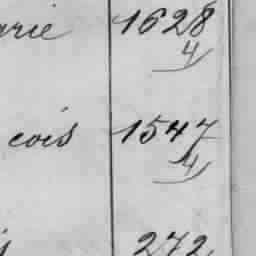 arie 1628
4
cois 1547
4
272